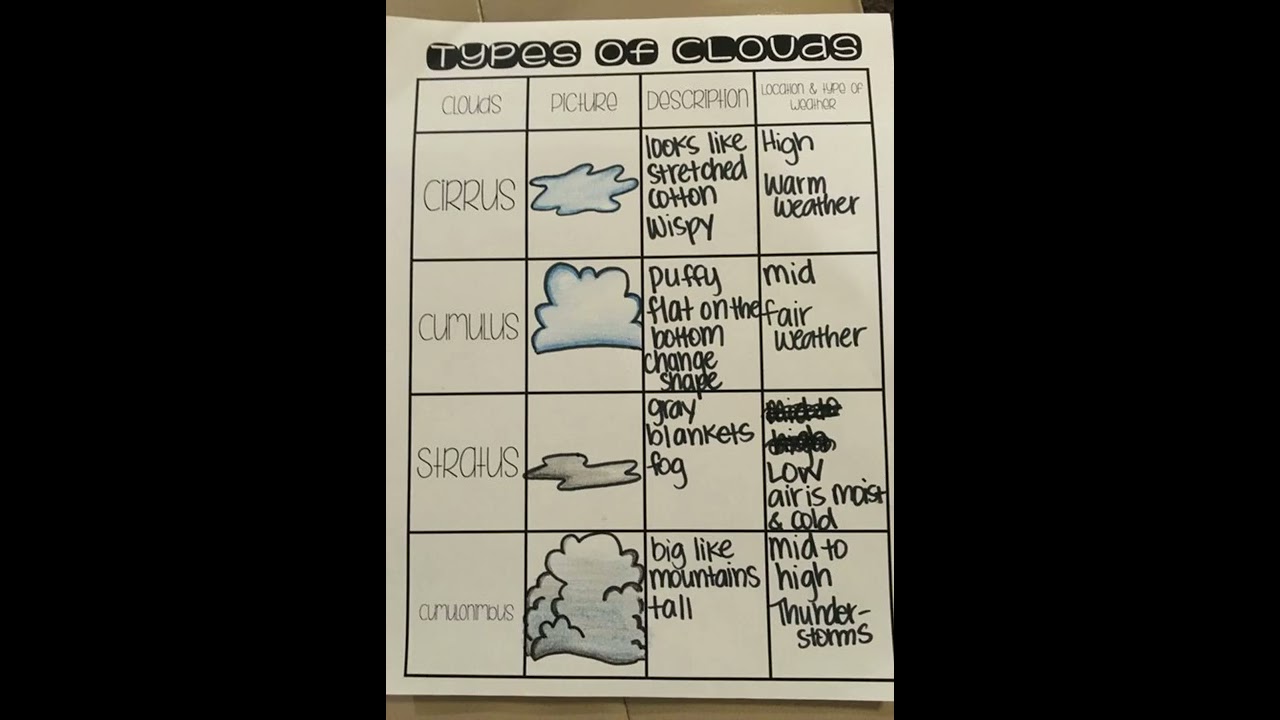 Types of Clouds
Clouds
Picture
Description
Location & type of
weather
Cirrus
looks like
stretched
cotton
wispy
High
warm
weather
Cumulus
puffy
flat on the
bottom
change
shape
mid
fair
weather
Stratus
gray
blankets
fog
Low
air is moist
& cold
Cumulonimbus
big like
mountains
tall
mid to
high
Thunder-
storms